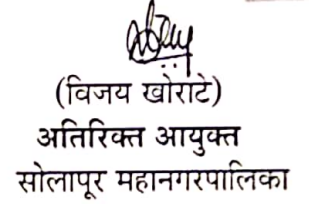 (विजय खोराटे)
अतिरिक्त आयुक्त
सोलापूर महानगरपालिका